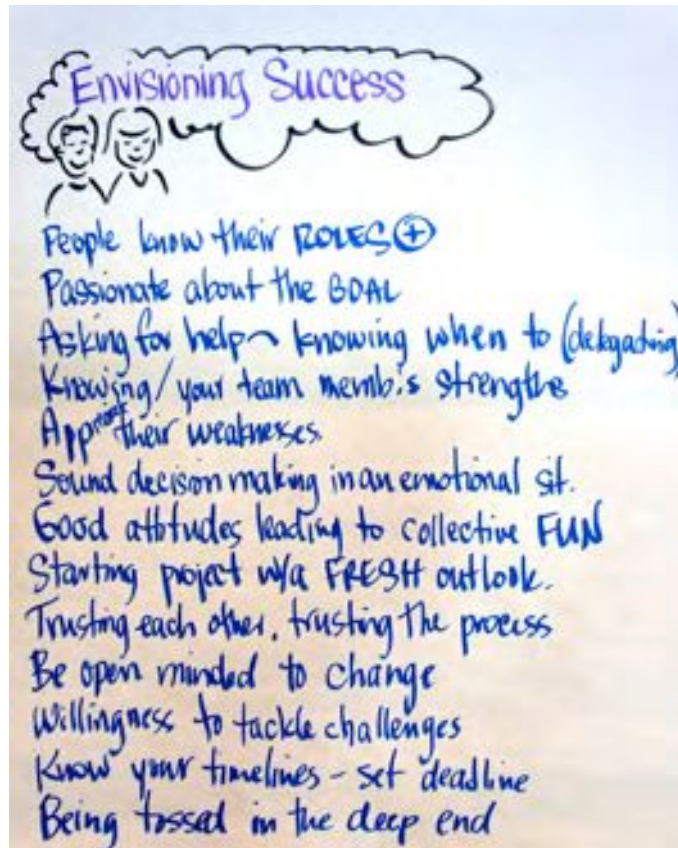 Envisioning Success
People know their ROLES +
Passionate about the GOAL
Asking for help knowing when to (delegading)
Knowing/your team memb.s strengths
their weaknesses.
Sound decision making in an emotional sit.
Good attitudes leading to collective FUN
Starting project w/a FRESH outlook.
Trusting each other, trusting the process
Be open minded to change
Willingness to tackle challenges
Know your timelines - set deadline
Being tossed in the deep end